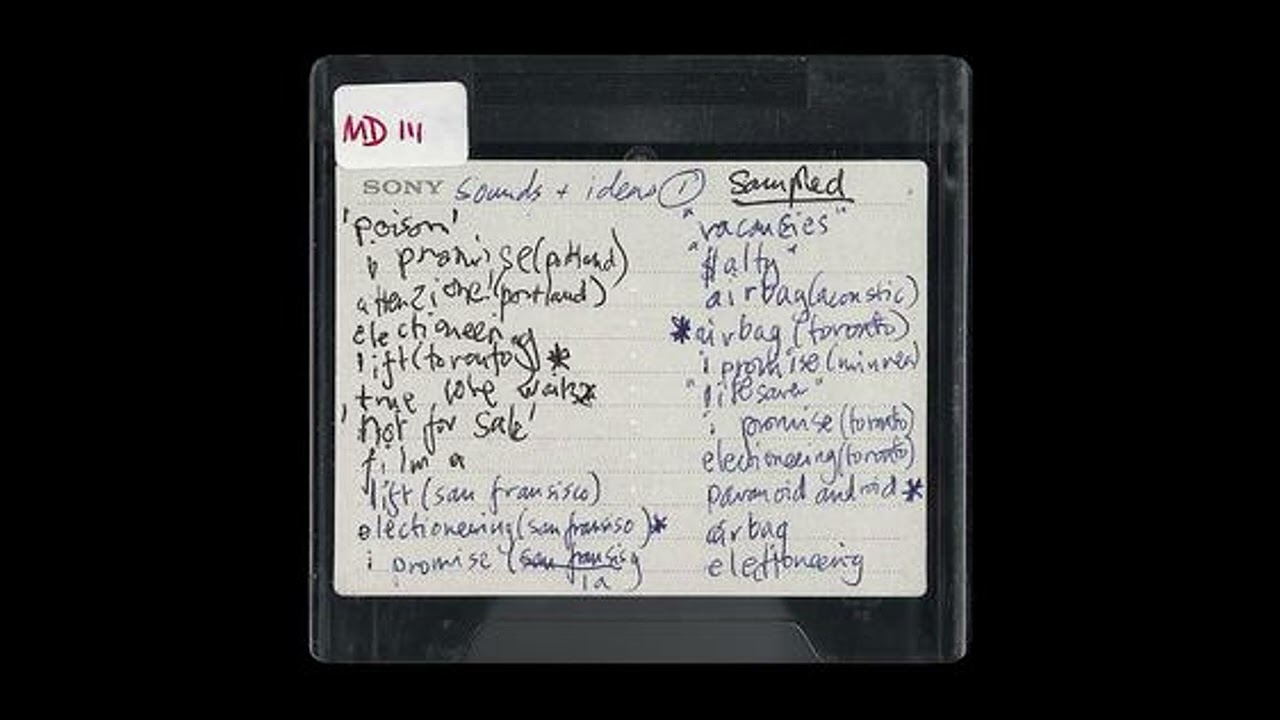 MD 111
SONY sounds + ideas ① sampled
'poison'
i promise (portland)
attenzione! (portland)
electioneering
lift (toronto) *
true love waits
'not for sale'
film a
lift (san fransisco)
electioneering (san fransiso) *
i promise (san fransisg
la
"vacancies"
airbag (acoustic)
* airbag (toronto)
i promise (
"lifesaver"
i promise (toronto)
electioneering (toronto)
paranoid android *
airbag
electioneering